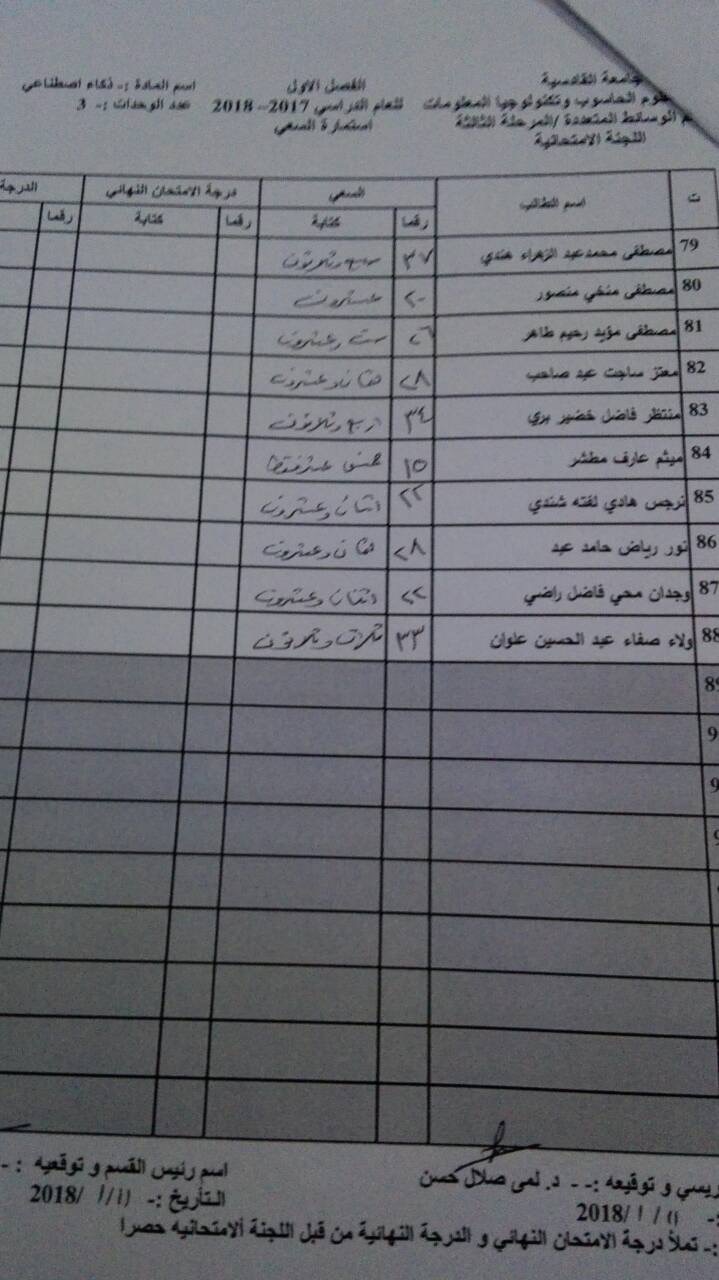 جامعة القادسية
علوم الحاسوب وتكنولوجيا المعلومات
م الوسائط المتعددة /المرحلة الثالثة
اللجنة الامتحانية
الفصل الاول
للعام الدراسي 2017– 2018
استمارة السعي
اسم المادة :- ذكاء اصطناعي
عدد الوحدات :- 3
ت اسم الطالب السعي درجة الامتحان النهائي الدرجة
رقما كتابة رقما كتابة رقما
79 مصطفى محمدعبد الزهراء هندي ٣٧ سبع وثلاثون
80 مصطفى منخي منصور ٢٠ عشرون
81 مصطفى مؤيد رحيم طاهر ٢٦ ست وعشرون
82 معتز ساجت عبد صاحب ٢٨ ثمان وعشرون
83 منتظر فاضل خضير بري ٣٤ اربع وثلاثون
84 ميثم عارف مطشر ١٥ خمس عشر فقط
85 نرجس هادي لفته شندي ٢٢ اثنان وعشرون
86 نور رياض حامد عبد ٢٨ ثمان وعشرون
87 وجدان محي فاضل راضي ٢٢ اثنان وعشرون
88 ولاء صفاء عبد الحسين علوان ٣٣ ثلاث وثلاثون
ريسي و توقيعه :- - د. لمى صلال حسن
اسم رئيس القسم و توقعيه : -
:- ١١ / ١ /2018
التأريخ :- ١١ / ١ /2018
:- تملأ درجة الامتحان النهائي و الدرجة النهائية من قبل اللجنة ألامتحانيه حصرا